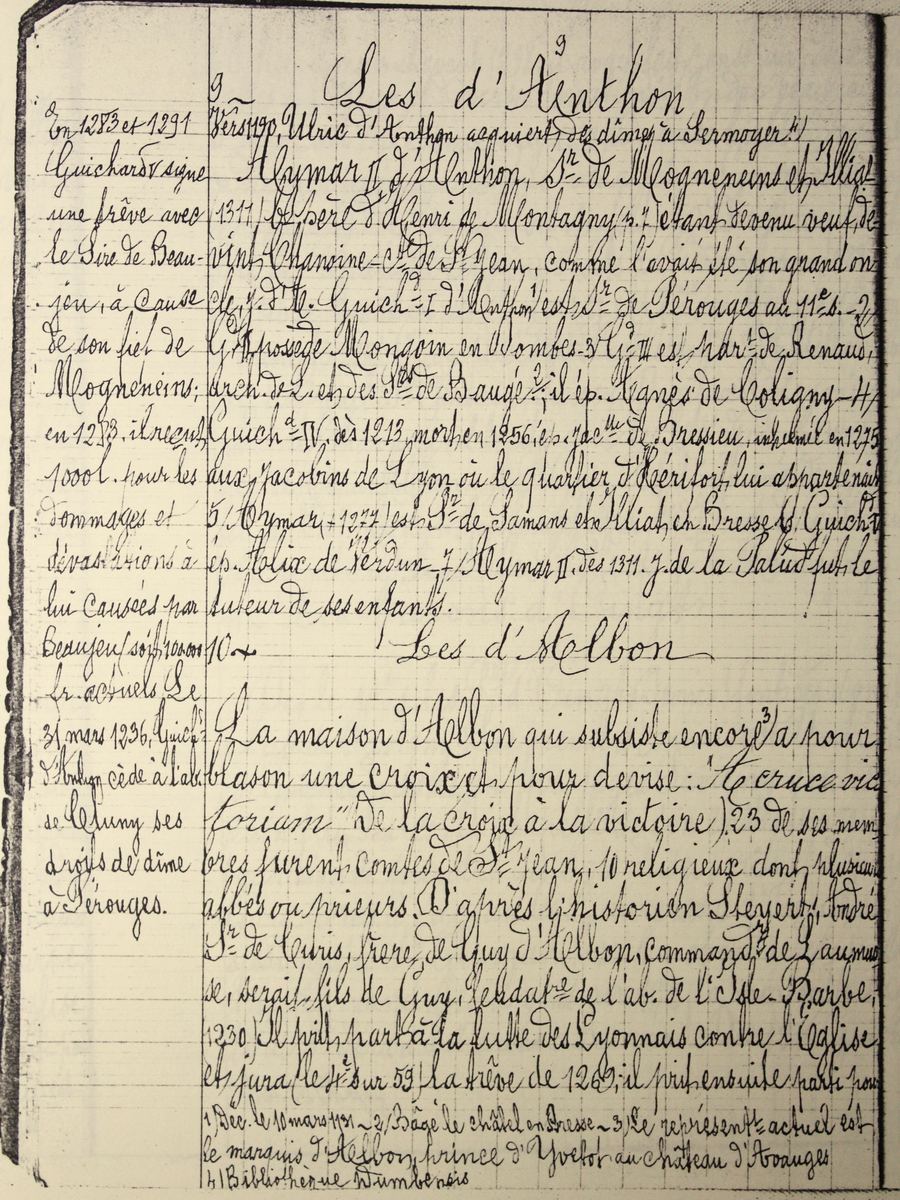 9
9 Les d'Anthon
Vers 1190, Ulric d'Anthon acquiert des dîmes à Sermoyer 4/
Aymar II d'Anthon, Sr de Mogneneins et Illiat
(1311) b. père d'Henri de Montagny (3.7) étant devenu veuf, de
vint Chanoine-Cte de St Jean, comme l'avait été son grand on-
cle, J. d'A. Guichd I d'Anthon 1/ est Sr de Pérouges au 11e s. - 2/
Gd II possède Mongoin en Dombes - 3/ Gd III est part. de Renaud,
arch. de L. et des Srs de Baugé 2/; il ép. Agnès de Coligny - 4/
Guichd IV, dès 1213, mort en 1256, ép. Jactte de Bressieu, inhumée en 1275
aux Jacobins de Lyon où le quartier d'Hérifort lui appartenait
5/ Aymar (+1277) est Sr de Samans et Illiat, en Bresse 6/ Guichd V
ép. Alix de Verdun - 7/ Aymar II, dès 1311. J. de la Palud fut le
tuteur de ses enfants.
En 1273 et 1291
Guichard V signe
une trêve avec
le Sire de Beau-
jeu, à cause
de son fief de
Mogneneins;
en 1273, il reçut
1000 l. pour les
dommages et
dévastations à
lui causées par
Beaujeu (soit 100000
fr. actuels Le
31 mars 1236, Guichd
d'Anthon cède à l'ab.
de Cluny ses
droits de dîme
à Pérouges.
10 Les d'Albon
La maison d'Albon qui subsiste encore 3/ a pour
blason une croix et pour devise: "A cruce vic
toriam" De la croix à la victoire) 23 de ses mem
bres furent comtes de St Jean, 10 religieux dont plusieurs
abbés ou prieurs. D'après l'historien Steyert, André
Sr de Curis, frère de Guy d'Albon, commandr de Laumus
se, serait fils de Guy, feudatre de l'ab. de l'Isle-Barbe,
1230) Il prit part à la lutte des Lyonnais contre l'Église
et jura (le 4e sur 59) la trêve de 1269; il prit ensuite parti pour
1/ Déc. le 10 mars 1131 ~ 2/ Bâgé le châtel en Bresse ~ 3/ Le représentt actuel est
le marquis d'Albon, prince d'Yvetot au château d'Avauges
4/ Bibliothèque Dumbensis